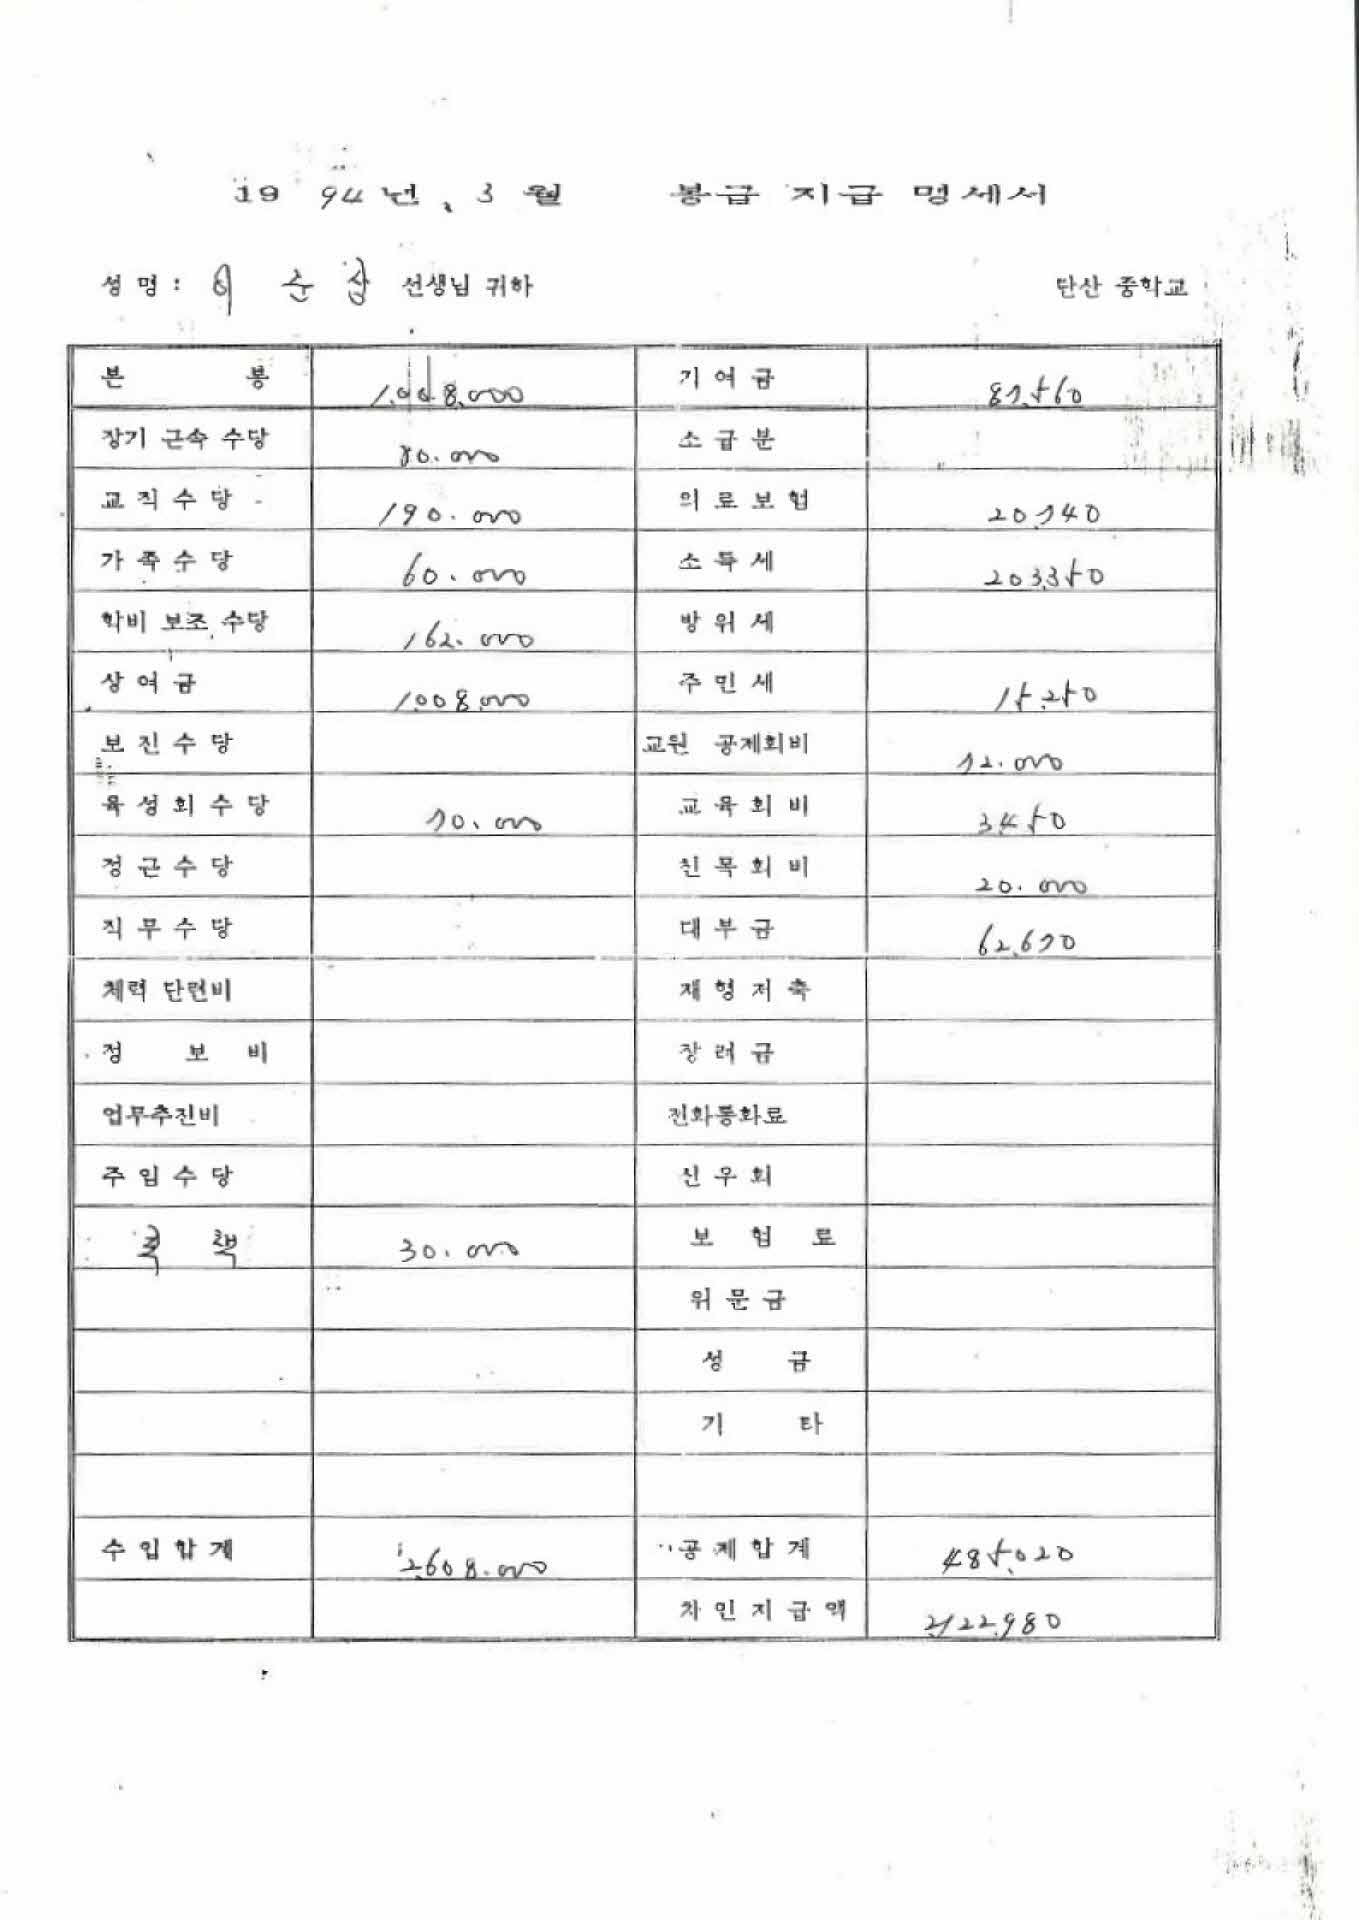 1994년. 3월 봉급 지급 명세서
성명 : 선생님 귀하 단산 중학교
본 봉 1,008.000 기여금 87.560
장기 근속 수당 80.000 소급분
교직수당 190.000 의료보험 20.740
가족수당 60.000 소득세 203350
학비 보조 수당 162.000 방위세
상여금 1.008.000 주민세 15.250
보진수당 교원 공제회비 72.000
육성회수당 70.000 교육회비 3450
정근수당 친목회비 20.000
직무수당 대부금 62.670
체력 단련비 재형저축
정 보 비 장려금
업무추진비 전화통화료
주임수당 신우회
책 30.000 보 험 료
위문금
성 금
기 타
수입합계 2,608.000 공제합계 485.020
차인지급액 2,122.980